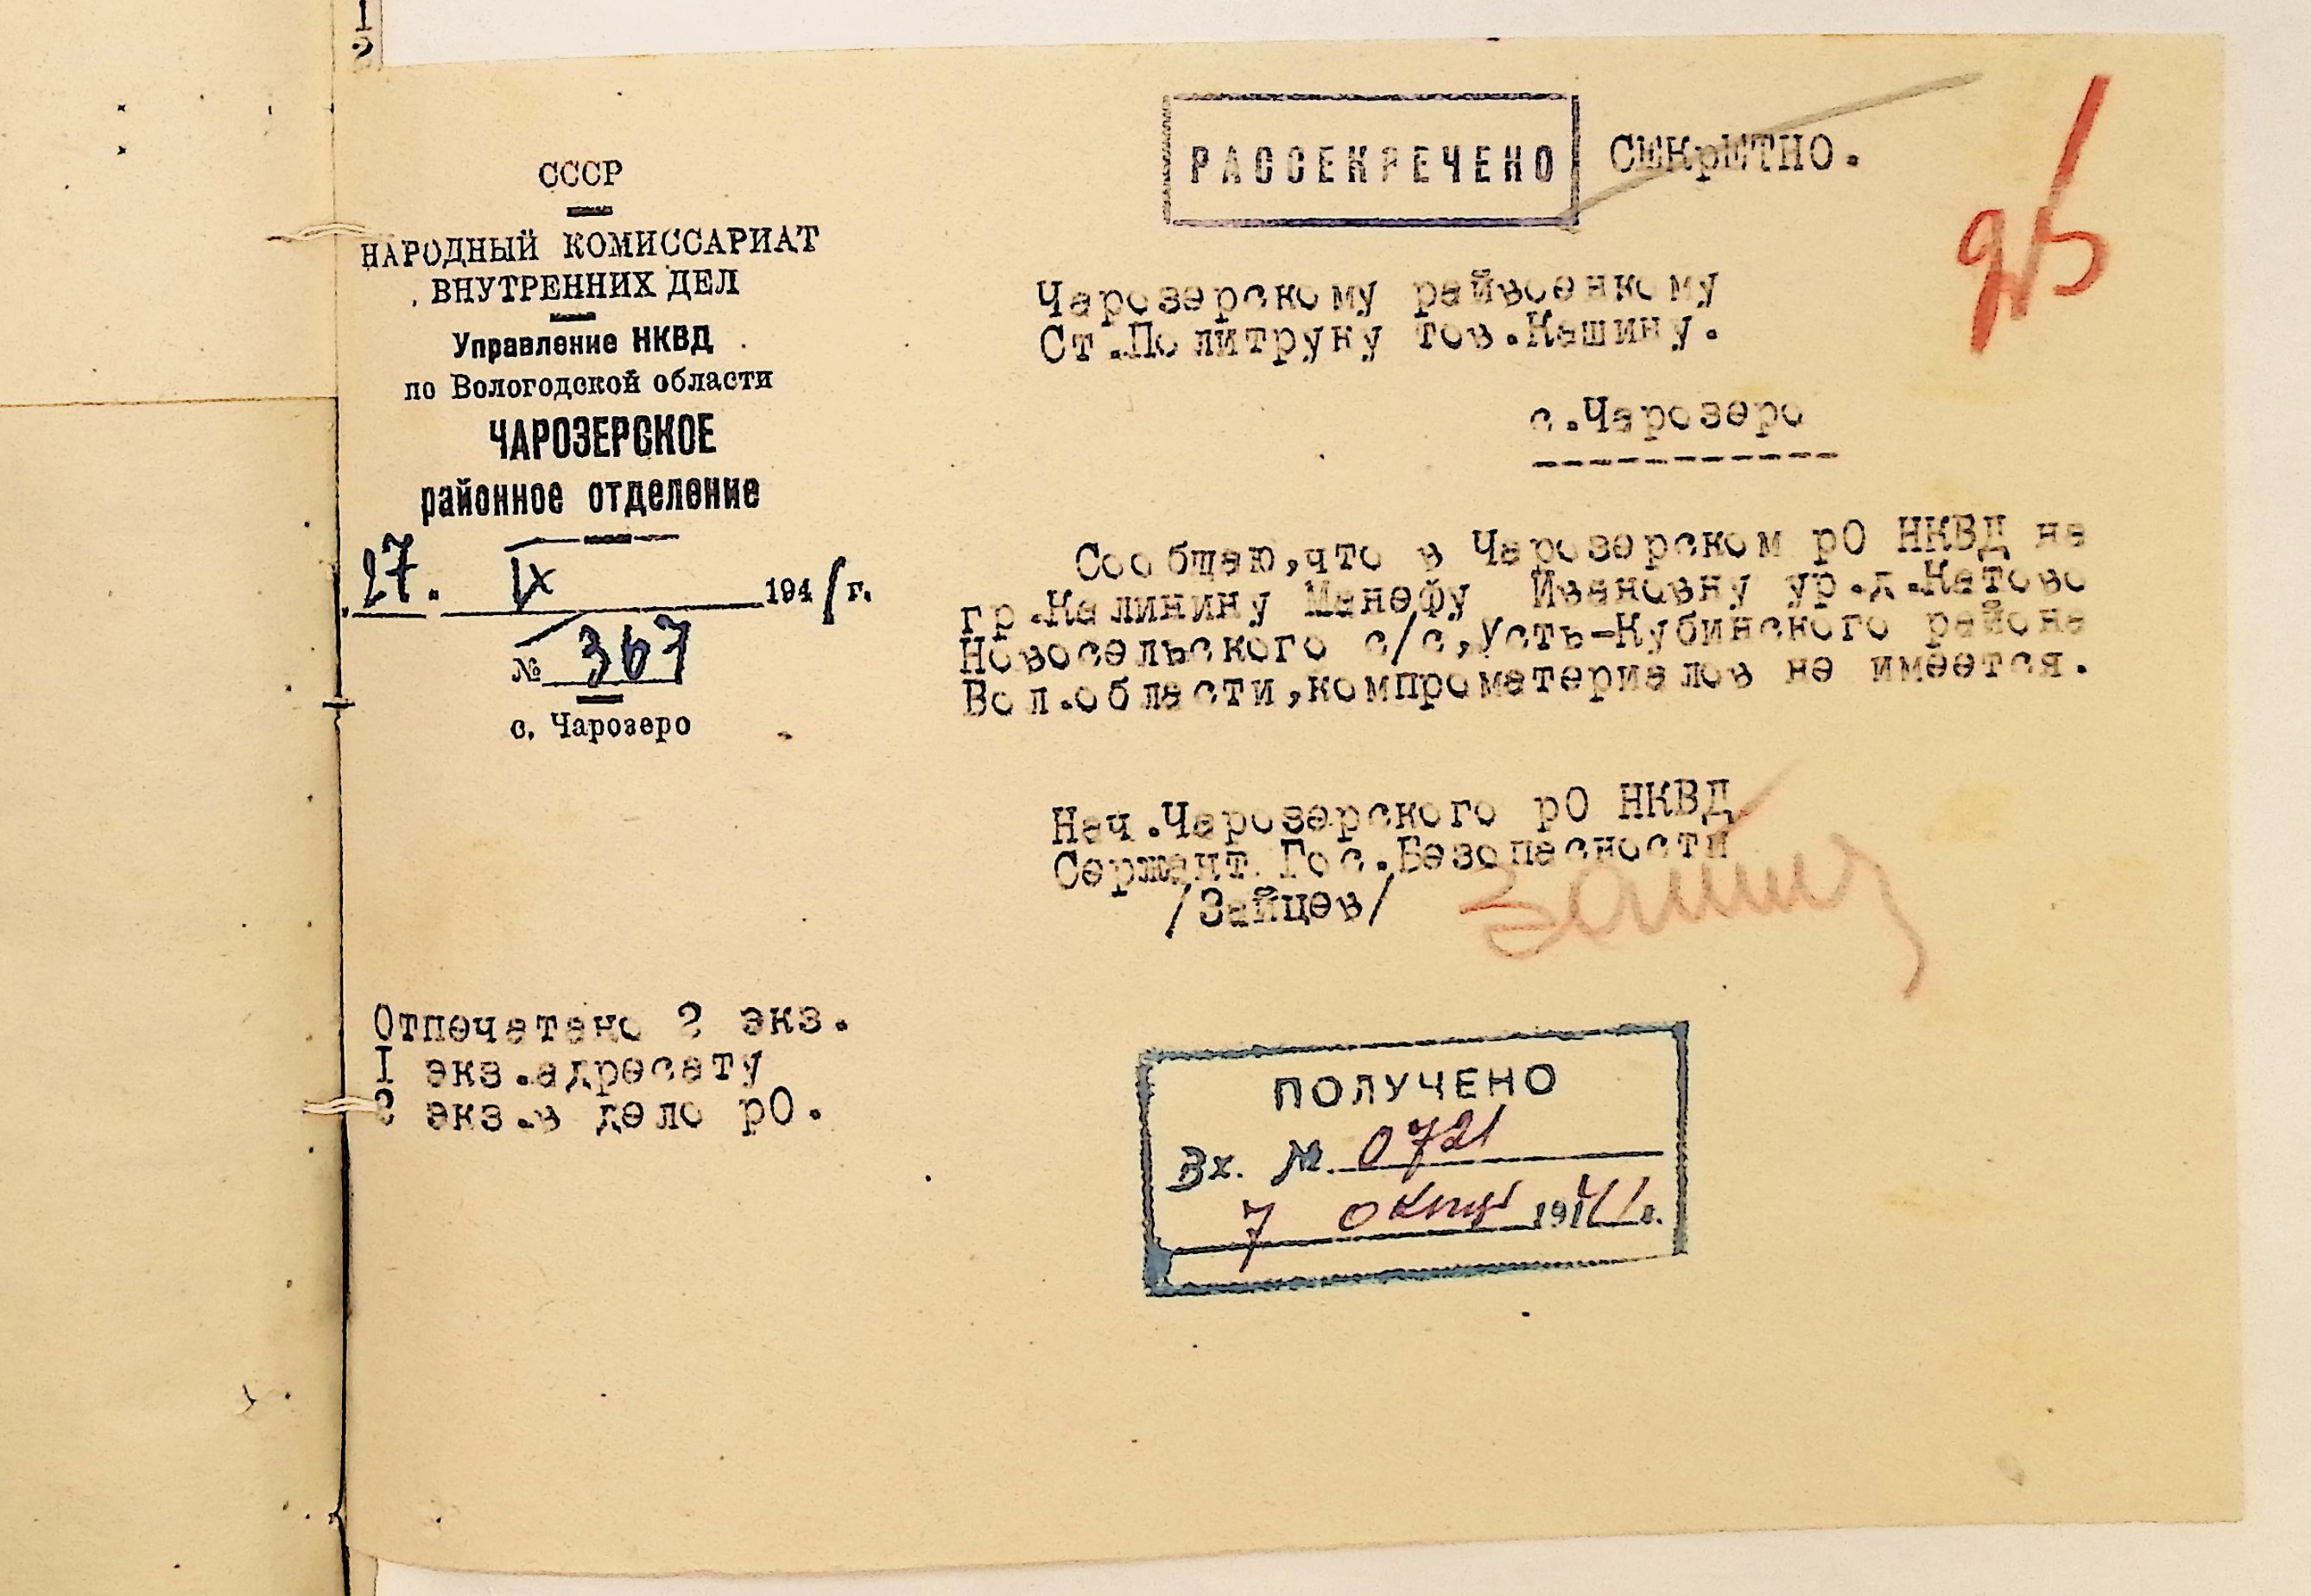 1
2
СССР
НАРОДНЫЙ КОМИССАРИАТ
ВНУТРЕННИХ ДЕЛ
Управление НКВД
по Вологодской области
ЧАРОЗЕРСКОЕ
районное отделение
27. IX 1941 г.
№ 367
с. Чарозеро
РАССЕКРЕЧЕНО
СЕКрЕТНО.
Чарозерскому райвоенкому
Ст.Политруку тов.Кашину.
с.Чарозеро
Сообщаю,что в Чарозерском рО НКВД на
гр.Калинину Манефу Ивановну ур.д.Катово
Новосельского с/с,Усть-Кубинского района
Вол.области,компроматериалов не имеется.
Нач.Чарозерского рО НКВД
Сержант Гос.Безопасности
/Зайцев/
Отпечатано 2 экз.
I экз.адресату
2 экз.в дело рО.
ПОЛУЧЕНО
Вх. №. 0721
7 1941 г.